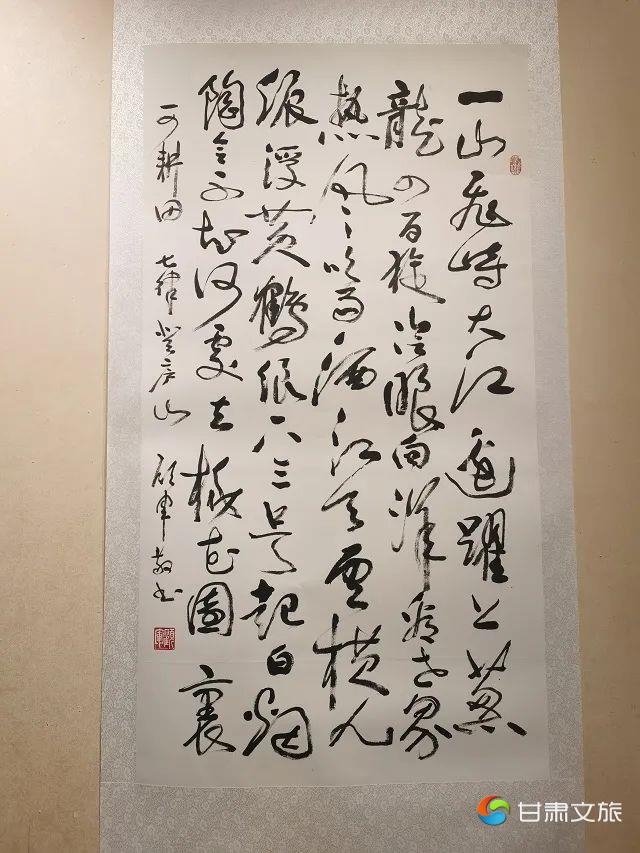 一山飛峙大江邊躍上葱
龍四百旋冷眼向洋看世界
热风吹雨洒江天雲横九
派浮黄鶴浪下三吴起白烟
陶令不知何處去桃花園裏
可耕田 七律登庐山 顾军敬书
甘肃文旅